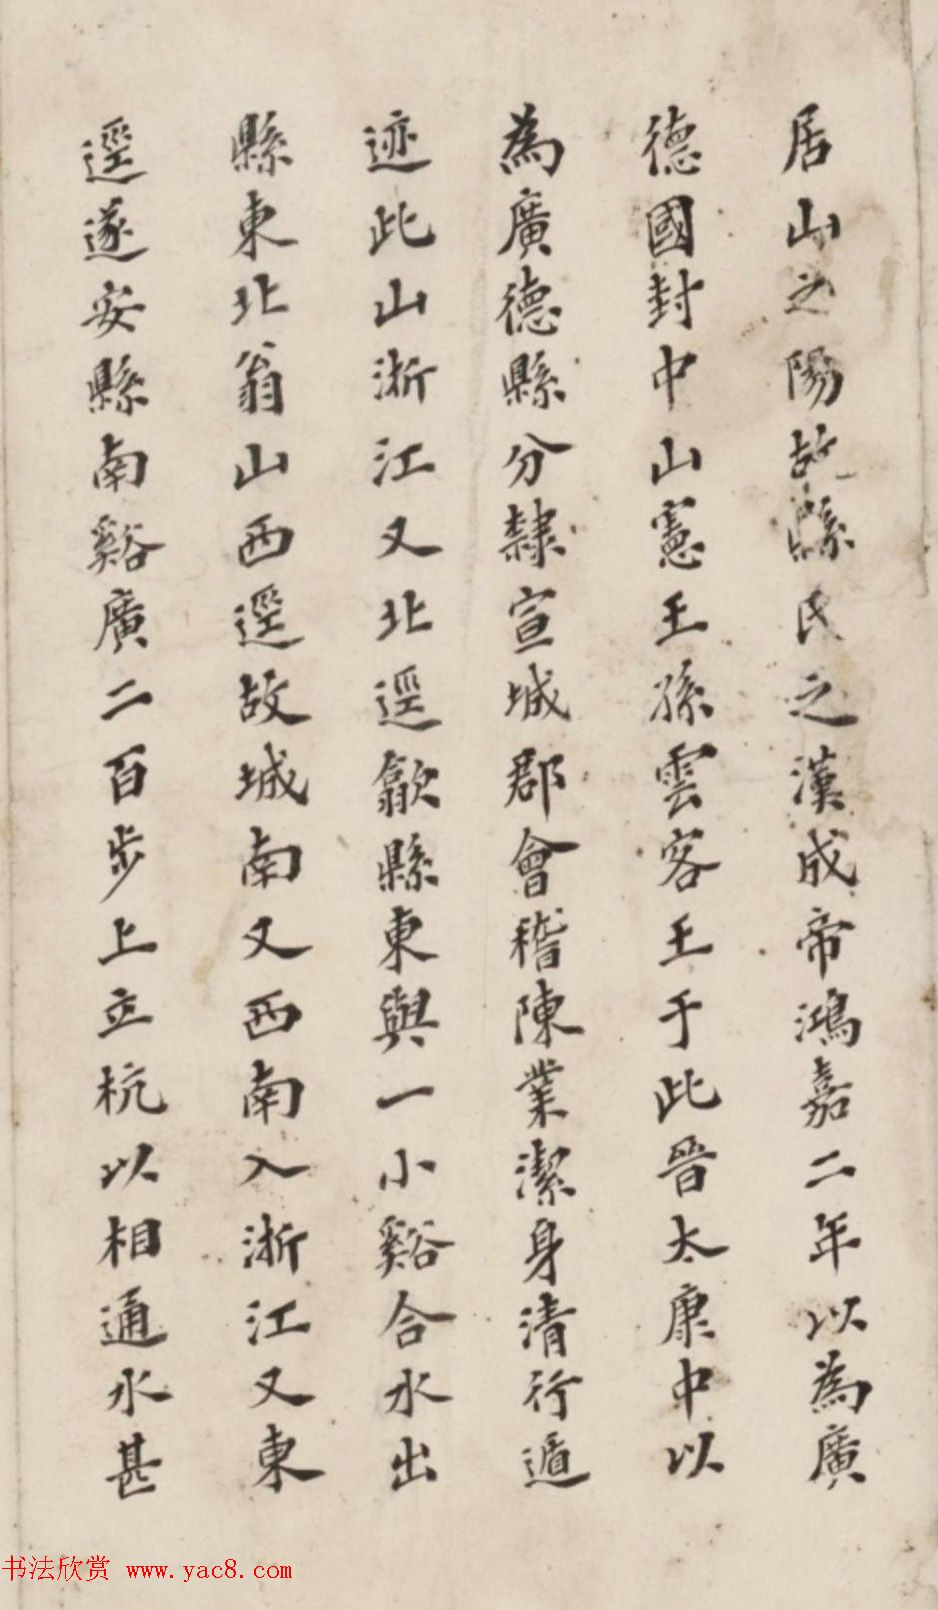 居山之陽故縣氏之漢成帝鴻嘉二年以為廣
德國封中山憲王孫雲客王于此晉太康中以
為廣德縣分隸宣城郡會稽陳業潔身清行遁
迹此山浙江又北逕歙縣東與一小谿合水出
縣東北翁山西逕故城南又西南入浙江又東
逕遂安縣南谿廣二百步上立杭以相通水甚
书法欣赏 www.yac8.com